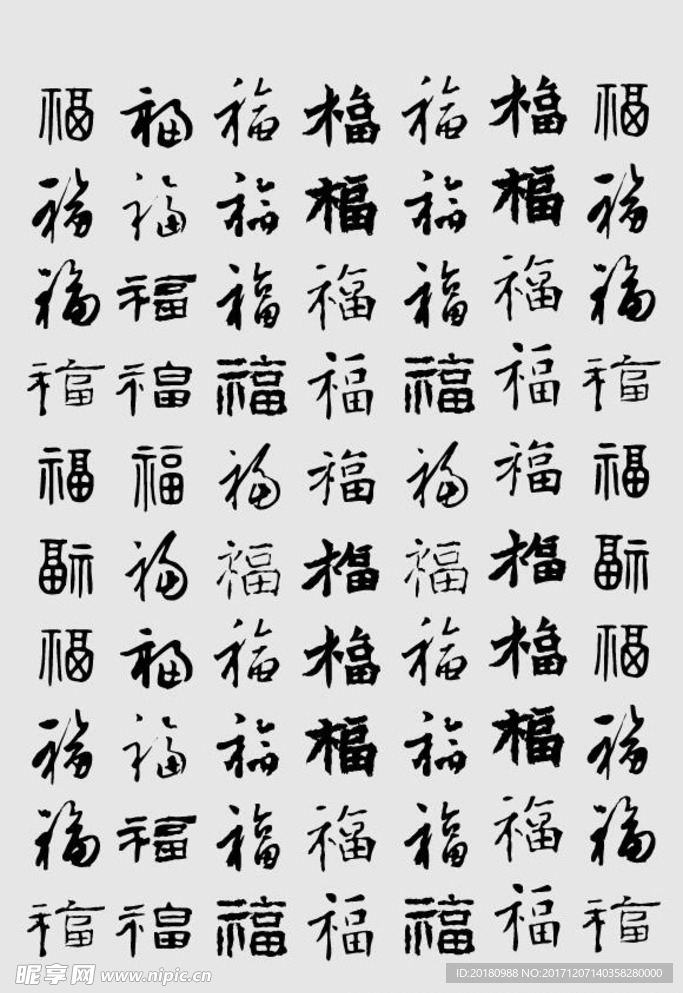 福福福福福福福
福福福福福福福
福福福福福福福
福福福福福福福
福福福福福福福
福福福福福福福
福福福福福福福
福福福福福福福
福福福福福福福
福福福福福福福
昵享网 www.nipic.cn
ID:20180988 NO:20171207140358280000